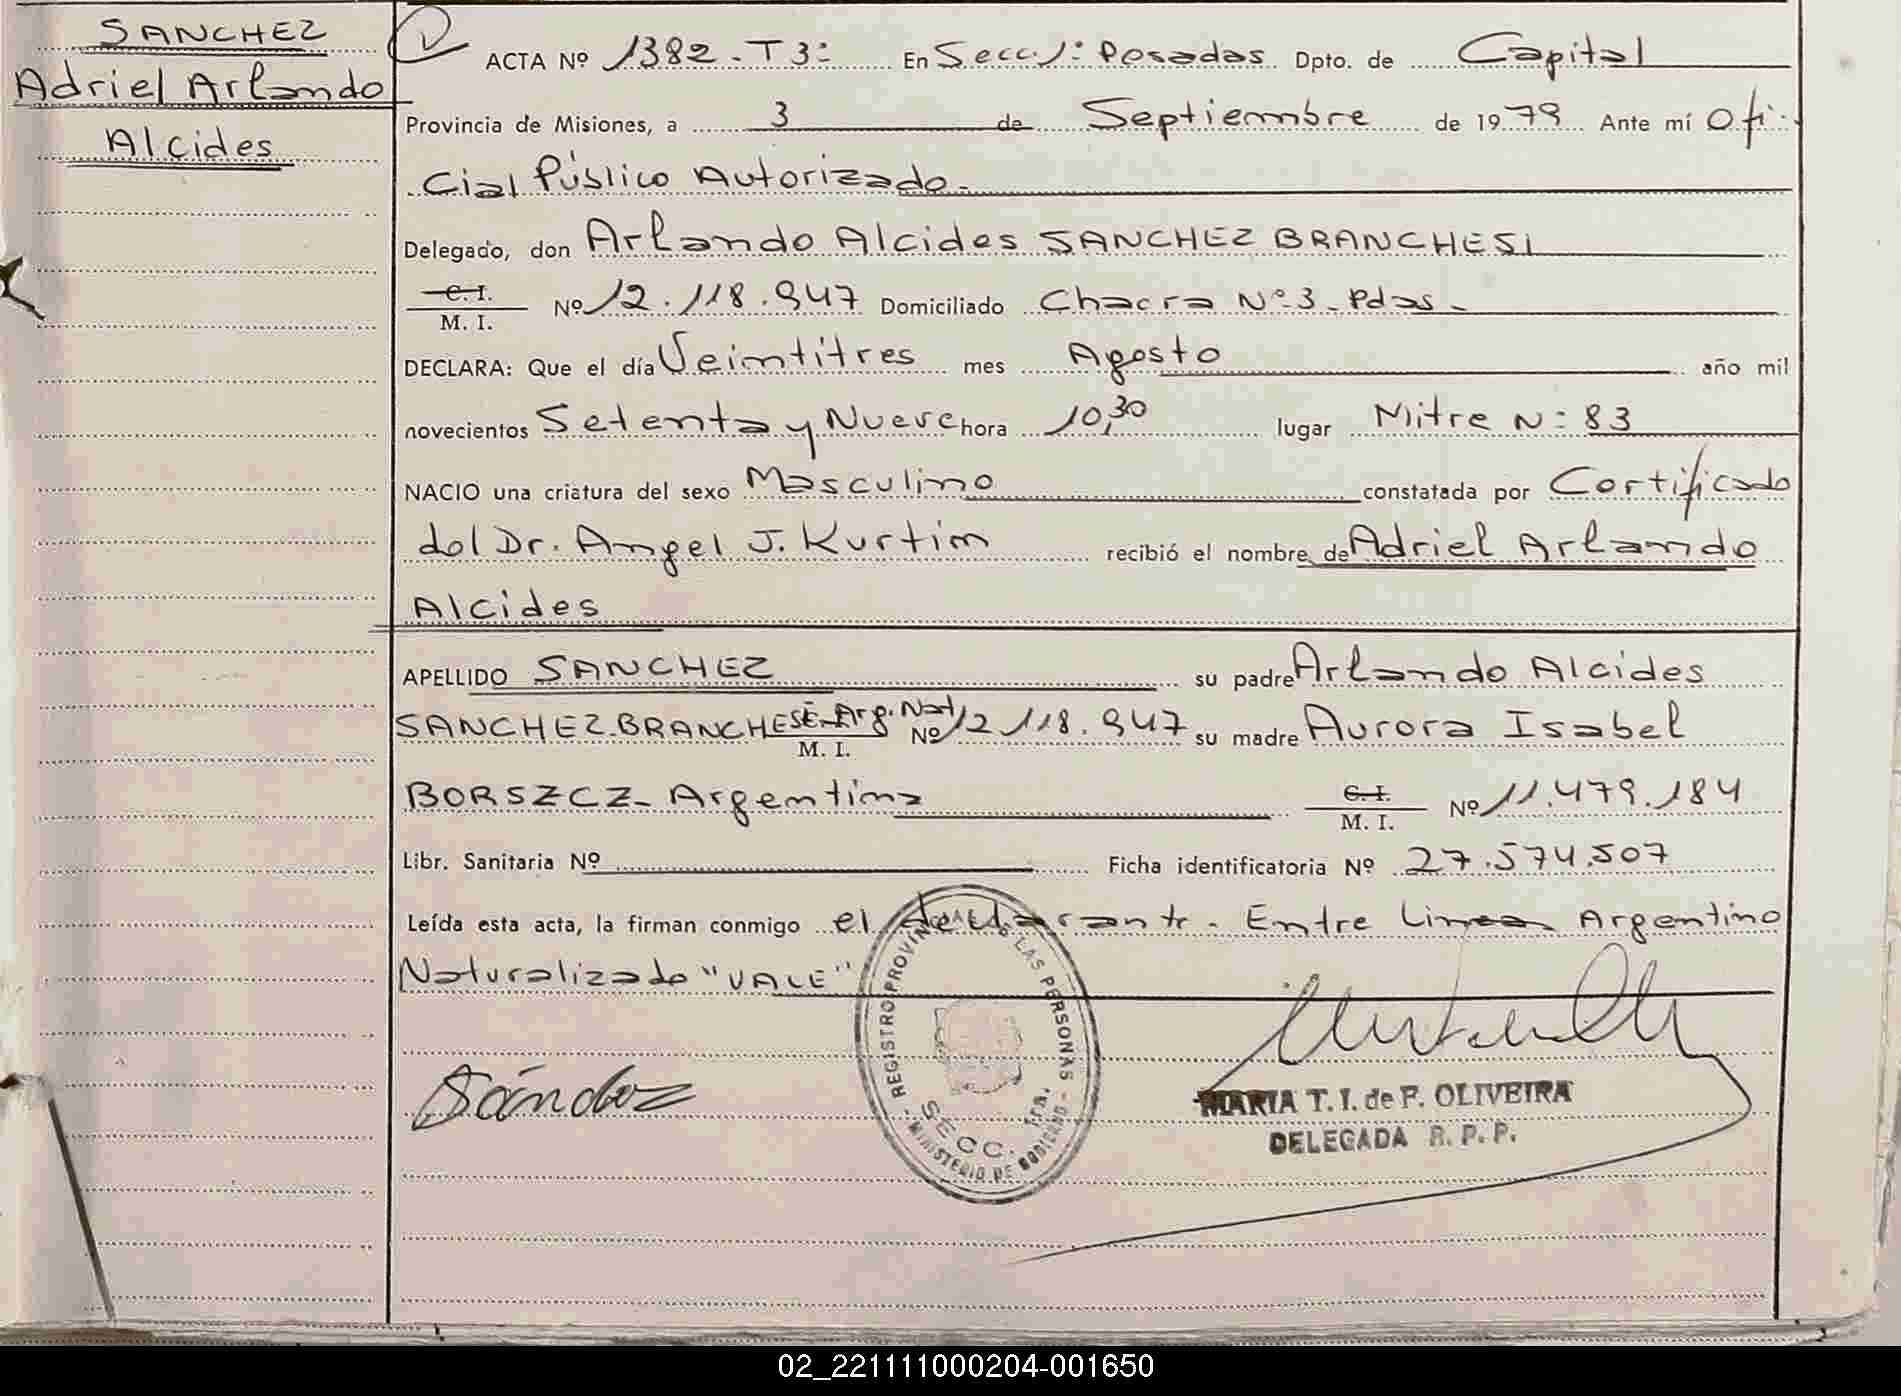 SANCHEZ
Adriel Arlando
Alcides
ACTA Nº 1382 - T3: En Secc 1: Posadas Dpto. de Capital
Provincia de Misiones, a 3 de Septiembre de 1979 Ante mí Ofi-
cial Público Autorizado.-
Delegado, don Arlando Alcides SANCHEZ BRANCHESI
C. I.
M. I. Nº 12.118.947 Domiciliado Chacra Nº 3 - Pdas -
DECLARA: Que el día Veintitres mes Agosto año mil
novecientos Setenta y Nueve hora 10,30 lugar Mitre N: 83
NACIO una criatura del sexo Masculino constatada por Certificado
del Dr. Angel J. Kurtim recibió el nombre de Adriel Arlando
Alcides
APELLIDO SANCHEZ su padre Arlando Alcides
SANCHEZ BRANCHESE - Arg. Nat
M. I. Nº 12 118.947 su madre Aurora Isabel
BORSZCZ - Argentina C. I.
M. I. Nº 11.479.184
Libr. Sanitaria Nº Ficha identificatoria Nº 27.574.507
Leída esta acta, la firman conmigo el declarante. Entre Lineas Argentino
Naturalizado "VALE"
REGISTRO PROVINCIAL DE LAS PERSONAS
SECC. 1ra.
MINISTERIO DE GOBIERNO
MARIA T. I. de F. OLIVEIRA
DELEGADA R. P. P.
02_221111000204-001650